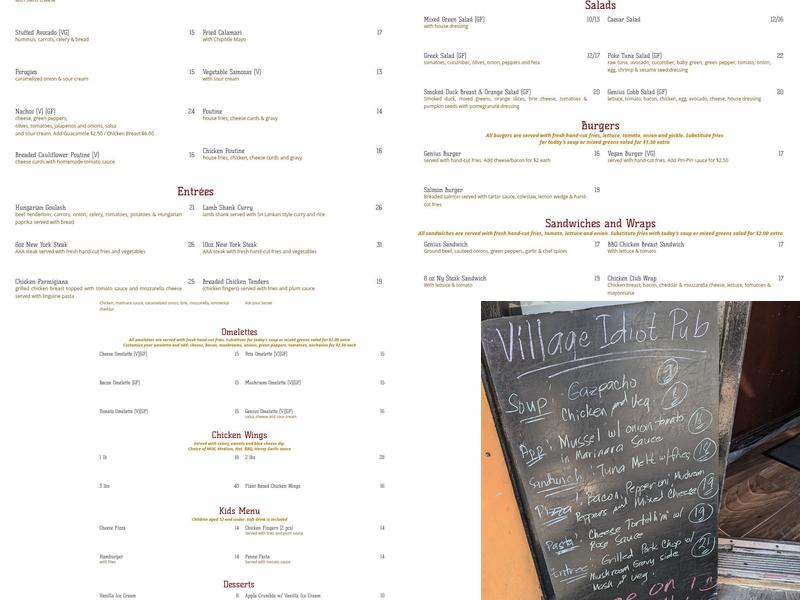 Stuffed Avocado [VG] 15
hummus, carrots, celery & bread
Fried Calamari 17
with Chipotle Mayo
Perogies 15
caramelized onion & sour cream
Vegetable Samosas [V] 13
with sour cream
Nachos [V] [GF] 24
cheese, green peppers,
olives, tomatoes, jalapenos and onions, salsa
and sour cream. Add Guacamole $2.50 / Chicken Breast $6.00
Poutine 14
house fries, cheese curds & gravy
Breaded Cauliflower Poutine [V] 16
cheese curds with homemade tomato sauce
Chicken Poutine 16
house fries, chicken, cheese curds and gravy
Entrées
Hungarian Goulash 21
beef tenderloin, carrots, onion, celery, tomatoes, potatoes & Hungarian
paprika served with bread
Lamb Shank Curry 26
lamb shank served with Sri Lankan style curry and rice
8oz New York Steak 26
AAA steak served with fresh hand-cut fries and vegetables
10oz New York Steak 31
AAA steak served with fresh hand-cut fries and vegetables
Chicken Parmigiana 25
grilled chicken breast topped with tomato sauce and mozzarella cheese
served with linguine pasta
Breaded Chicken Tenders 19
(chicken fingers) served with fries and plum sauce
Chicken, marinara sauce, caramelized onion, brie, mozzarella, emmental
cheddar
Ask your Server
Omelettes
All omelettes are served with fresh hand-cut fries. Substitute for today's soup or mixed greens salad for $2.00 extra
Customize your omelette and add: cheese, bacon, mushrooms, onions, green peppers, tomatoes, anchovies for $2.50 each
Cheese Omelette [V][GF] 15
Feta Omelette [V][GF] 15
Bacon Omelette [GF] 15
Mushroom Omelette [V][GF] 15
Tomato Omelette [V][GF] 15
Genius Omelette [V][GF] 16
salsa, cheese and sour cream
Chicken Wings
Served with celery, carrots and blue cheese dip
Choice of Mild, Medium, Hot, BBQ, Honey Garlic sauce
1 lb 16
2 lbs 28
3 lbs 40
Plant Based Chicken Wings 16
Kids Menu
Children aged 12 and under. Soft drink is included
Cheese Pizza 14
Chicken Fingers [2 pcs] 14
Served with fries and plum sauce
Hamburger 14
with fries
Penne Pasta 14
Served with tomato sauce
Desserts
Vanilla Ice Cream 8
Apple Crumble w/ Vanilla Ice Cream 10
Salads
Mixed Green Salad [GF] 10/13
with house dressing
Caesar Salad 12/16
Greek Salad [GF] 12/17
tomatoes, cucumber, olives, onion, peppers and feta
Poke Tuna Salad [GF] 22
raw tuna, avocado, cucumber, baby green, green pepper, tomato, onion,
egg, shrimp & sesame seed dressing
Smoked Duck Breast & Orange Salad [GF] 20
Smoked duck, mixed greens, orange slices, brie cheese, tomatoes &
pumpkin seeds with pomegranate dressing
Genius Cobb Salad [GF] 20
lettuce, tomato, bacon, chicken, egg, avocado, cheese, house dressing
Burgers
All burgers are served with fresh hand-cut fries, lettuce, tomato, onion and pickle. Substitute fries
for today's soup or mixed greens salad for $1.50 extra
Genius Burger 16
served with hand-cut fries. Add cheese/bacon for $2 each
Vegan Burger [VG] 17
served with hand-cut fries. Add Piri-Piri sauce for $2.50
Salmon Burger 19
Breaded salmon served with tartar sauce, coleslaw, lemon wedge & hand-
cut fries
Sandwiches and Wraps
All sandwiches are served with fresh hand-cut fries, tomato, lettuce and onion. Substitute fries with today's soup or mixed greens salad for $2.00 extra
Genius Sandwich 17
Ground beef, sauteed onions, green peppers, garlic & chef spices
BBQ Chicken Breast Sandwich 17
With lettuce & tomato
8 oz Ny Steak Sandwich 19
With lettuce & tomato
Chicken Club Wrap 17
Chicken breast, bacon, cheddar & mozzarella cheese, lettuce, tomatoes &
mayonnaise
Village Idiot Pub
Soup: Gazpacho
Chicken and Veg
App: Mussel w/ onion tomato
in Marinara Sauce
Sandwich: Tuna Melt w/ fries
Pizza: Bacon, Pepperoni, Mushroom
Peppers and Mixed Cheese 19
Pasta: Cheese Tortellini w/ 19
Rose Sauce
Entree: Grilled Pork Chop w/ 21
Mushroom Gravy side
Mash & Veg.